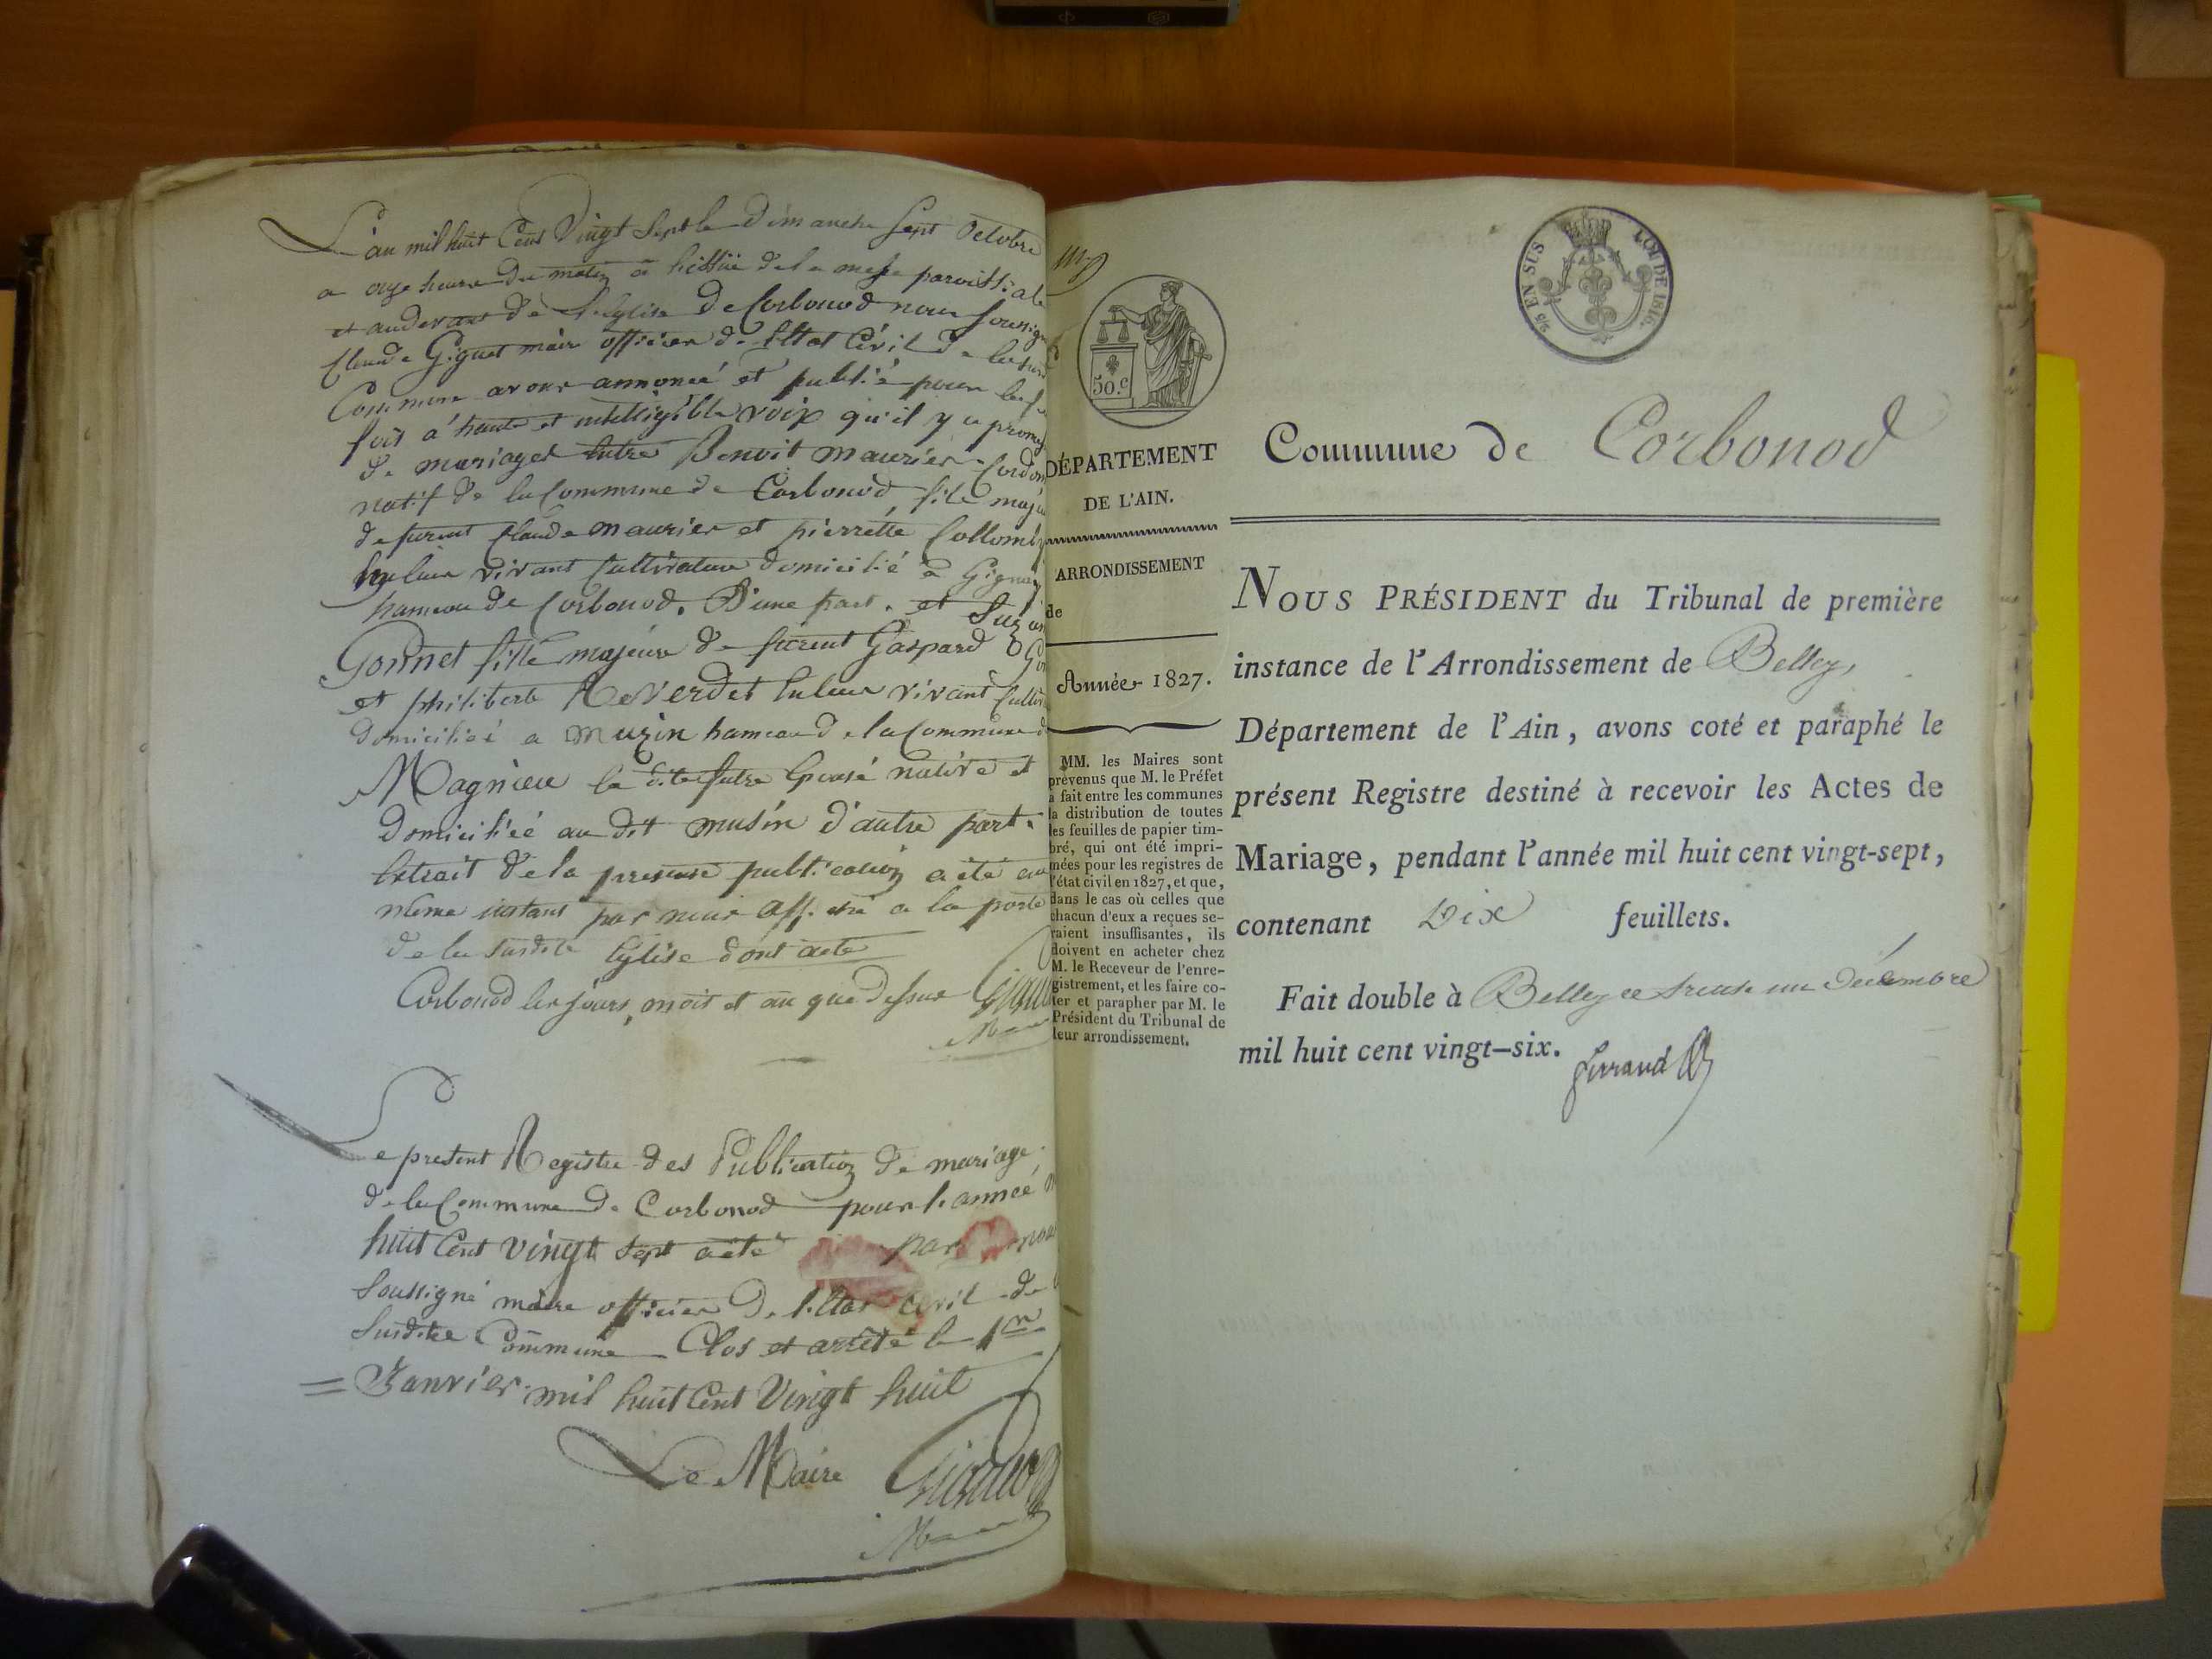 L'an mil huit Cent Vingt Sept le Dimanche sept Octobre
a onze heure du matin a l'issüe de la messe paroissiale
et audevant de l'Eglise De Corbonod nous soussigné
Claude Giguet maire officier de l'Etat Civil de la susd
Commune avons annoncé et publié pour la
fois a haute et intelligible voix qu'il y a promes
de mariages entre Benoit maurier Cordon
natif de la Commune de Corbonod fils maje
de furent Claude maurier et pierrette Collomb
vivant Cultivateur domicilié a Gignez
hameau de Corbonod. D'une part. et Suzan
Gonnet fille majeure de furent Gaspard Go
et philiberte Reverdet vivant Culti
domiciliéé a Muzin hameau de la Commune d
Magnieu la dite futre Epousé native et
Domiciliéé au dit musin d'autre part.
Extrait de la presente publication a été au
même instant par nous affiché a la porte
de la susdite Eglise dont acte
Corbonod les jours, mois et an que dessus
Le present Registre des Publication de mariage
de la Commune de Corbonod pour l'année m
huit Cent vingt sept a été par nous
soussigné maire officier De l'Etat Civil de l
susdite Commune Clos et arrêté le 1er
= Janvier mil huit Cent Vingt huit
Le Maire
25 EN SUS
LOI DE 1816.
50.c
DÉPARTEMENT
DE L'AIN.
ARRONDISSEMENT
de
Année 1827.
MM. les Maires sont
prévenus que M. le Préfet
a fait entre les communes
la distribution de toutes
les feuilles de papier tim-
bré, qui ont été impri-
mées pour les registres de
l'état civil en 1827, et que,
dans le cas où celles que
chacun d'eux a reçues se-
raient insuffisantes, ils
doivent en acheter chez
M. le Receveur de l'enre-
gistrement, et les faire co-
ter et parapher par M. le
Président du Tribunal de
leur arrondissement.
Commune de Corbonod
NOUS PRÉSIDENT du Tribunal de première
instance de l'Arrondissement de Belley,
Département de l'Ain, avons coté et paraphé le
présent Registre destiné à recevoir les Actes de
Mariage, pendant l'année mil huit cent vingt-sept,
contenant Dix feuillets.
Fait double à Belley ce trente un Décembre
mil huit cent vingt-six.